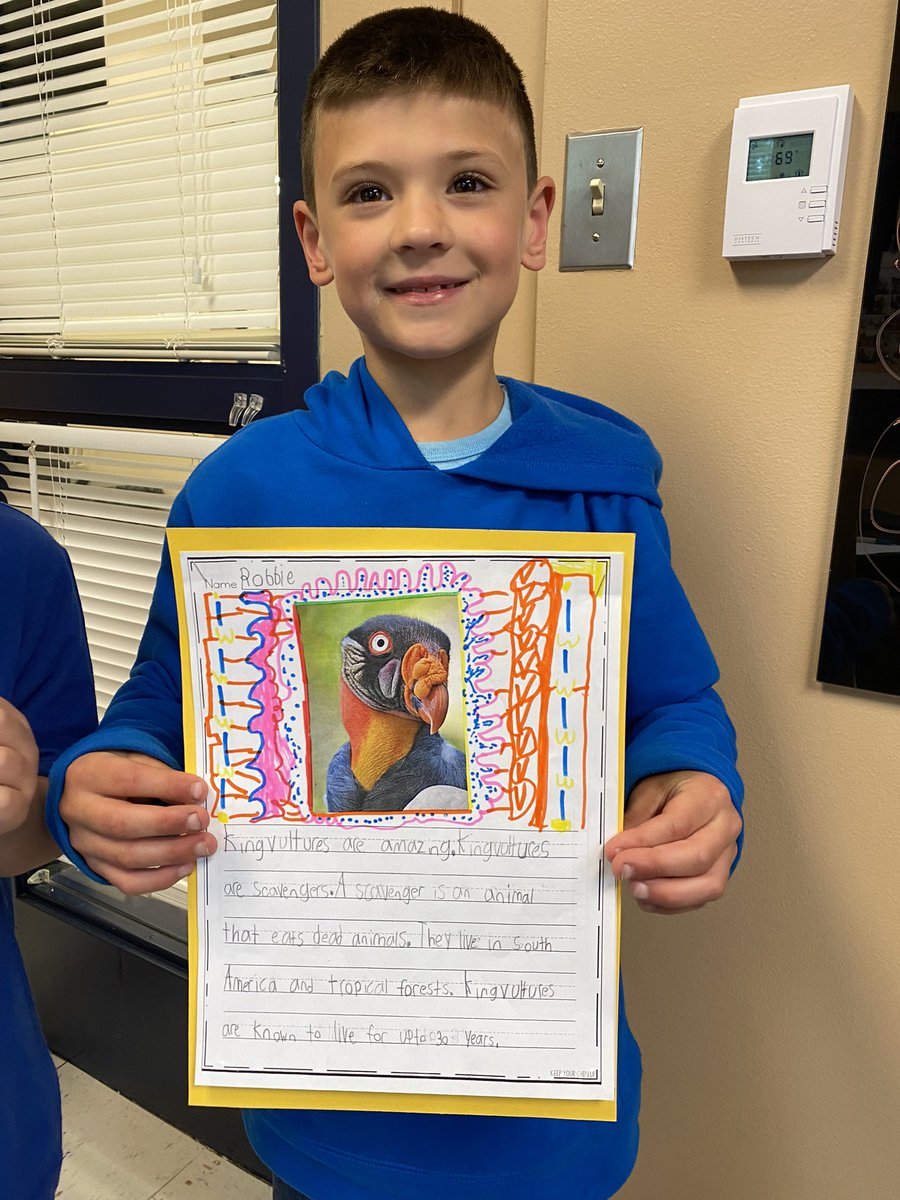 69°
DISTECH
CONTROLS
Name Robbie
Kingvultures are amazing. Kingvultures
are scavengers. A scavenger is an animal
that eats dead animals. They live in south
America and tropical forests. Kingvultures
are known to live for upto 30 years.
KEEP YOUR CHIN UP